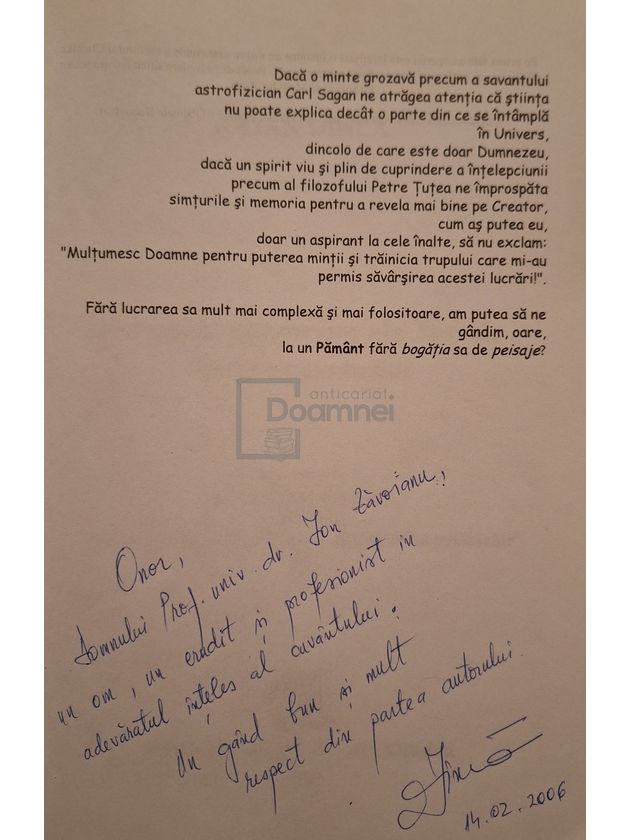 Dacă o minte grozavă precum a savantului
astrofizician Carl Sagan ne atrăgea atenţia că ştiinţa
nu poate explica decât o parte din ce se întâmplă
în Univers,
dincolo de care este doar Dumnezeu,
dacă un spirit viu şi plin de cuprindere a înţelepciunii
precum al filozofului Petre Ţuţea ne împrospăta
simţurile şi memoria pentru a revela mai bine pe Creator,
cum aş putea eu,
doar un aspirant la cele înalte, să nu exclam:
"Mulţumesc Doamne pentru puterea minţii şi trăinicia trupului care mi-au
permis săvârşirea acestei lucrări!".
Fără lucrarea sa mult mai complexă şi mai folositoare, am putea să ne
gândim, oare,
la un Pământ fără bogăţia sa de peisaje?
anticariat
Doamnei
Onor,
Domnului Prof. univ. dr. Ion Zăvoianu,
un om, un erudit şi profesionist in
adevăratul înţeles al cuvântului.
Un gând bun şi mult
respect din partea autorului.
14.02.2006